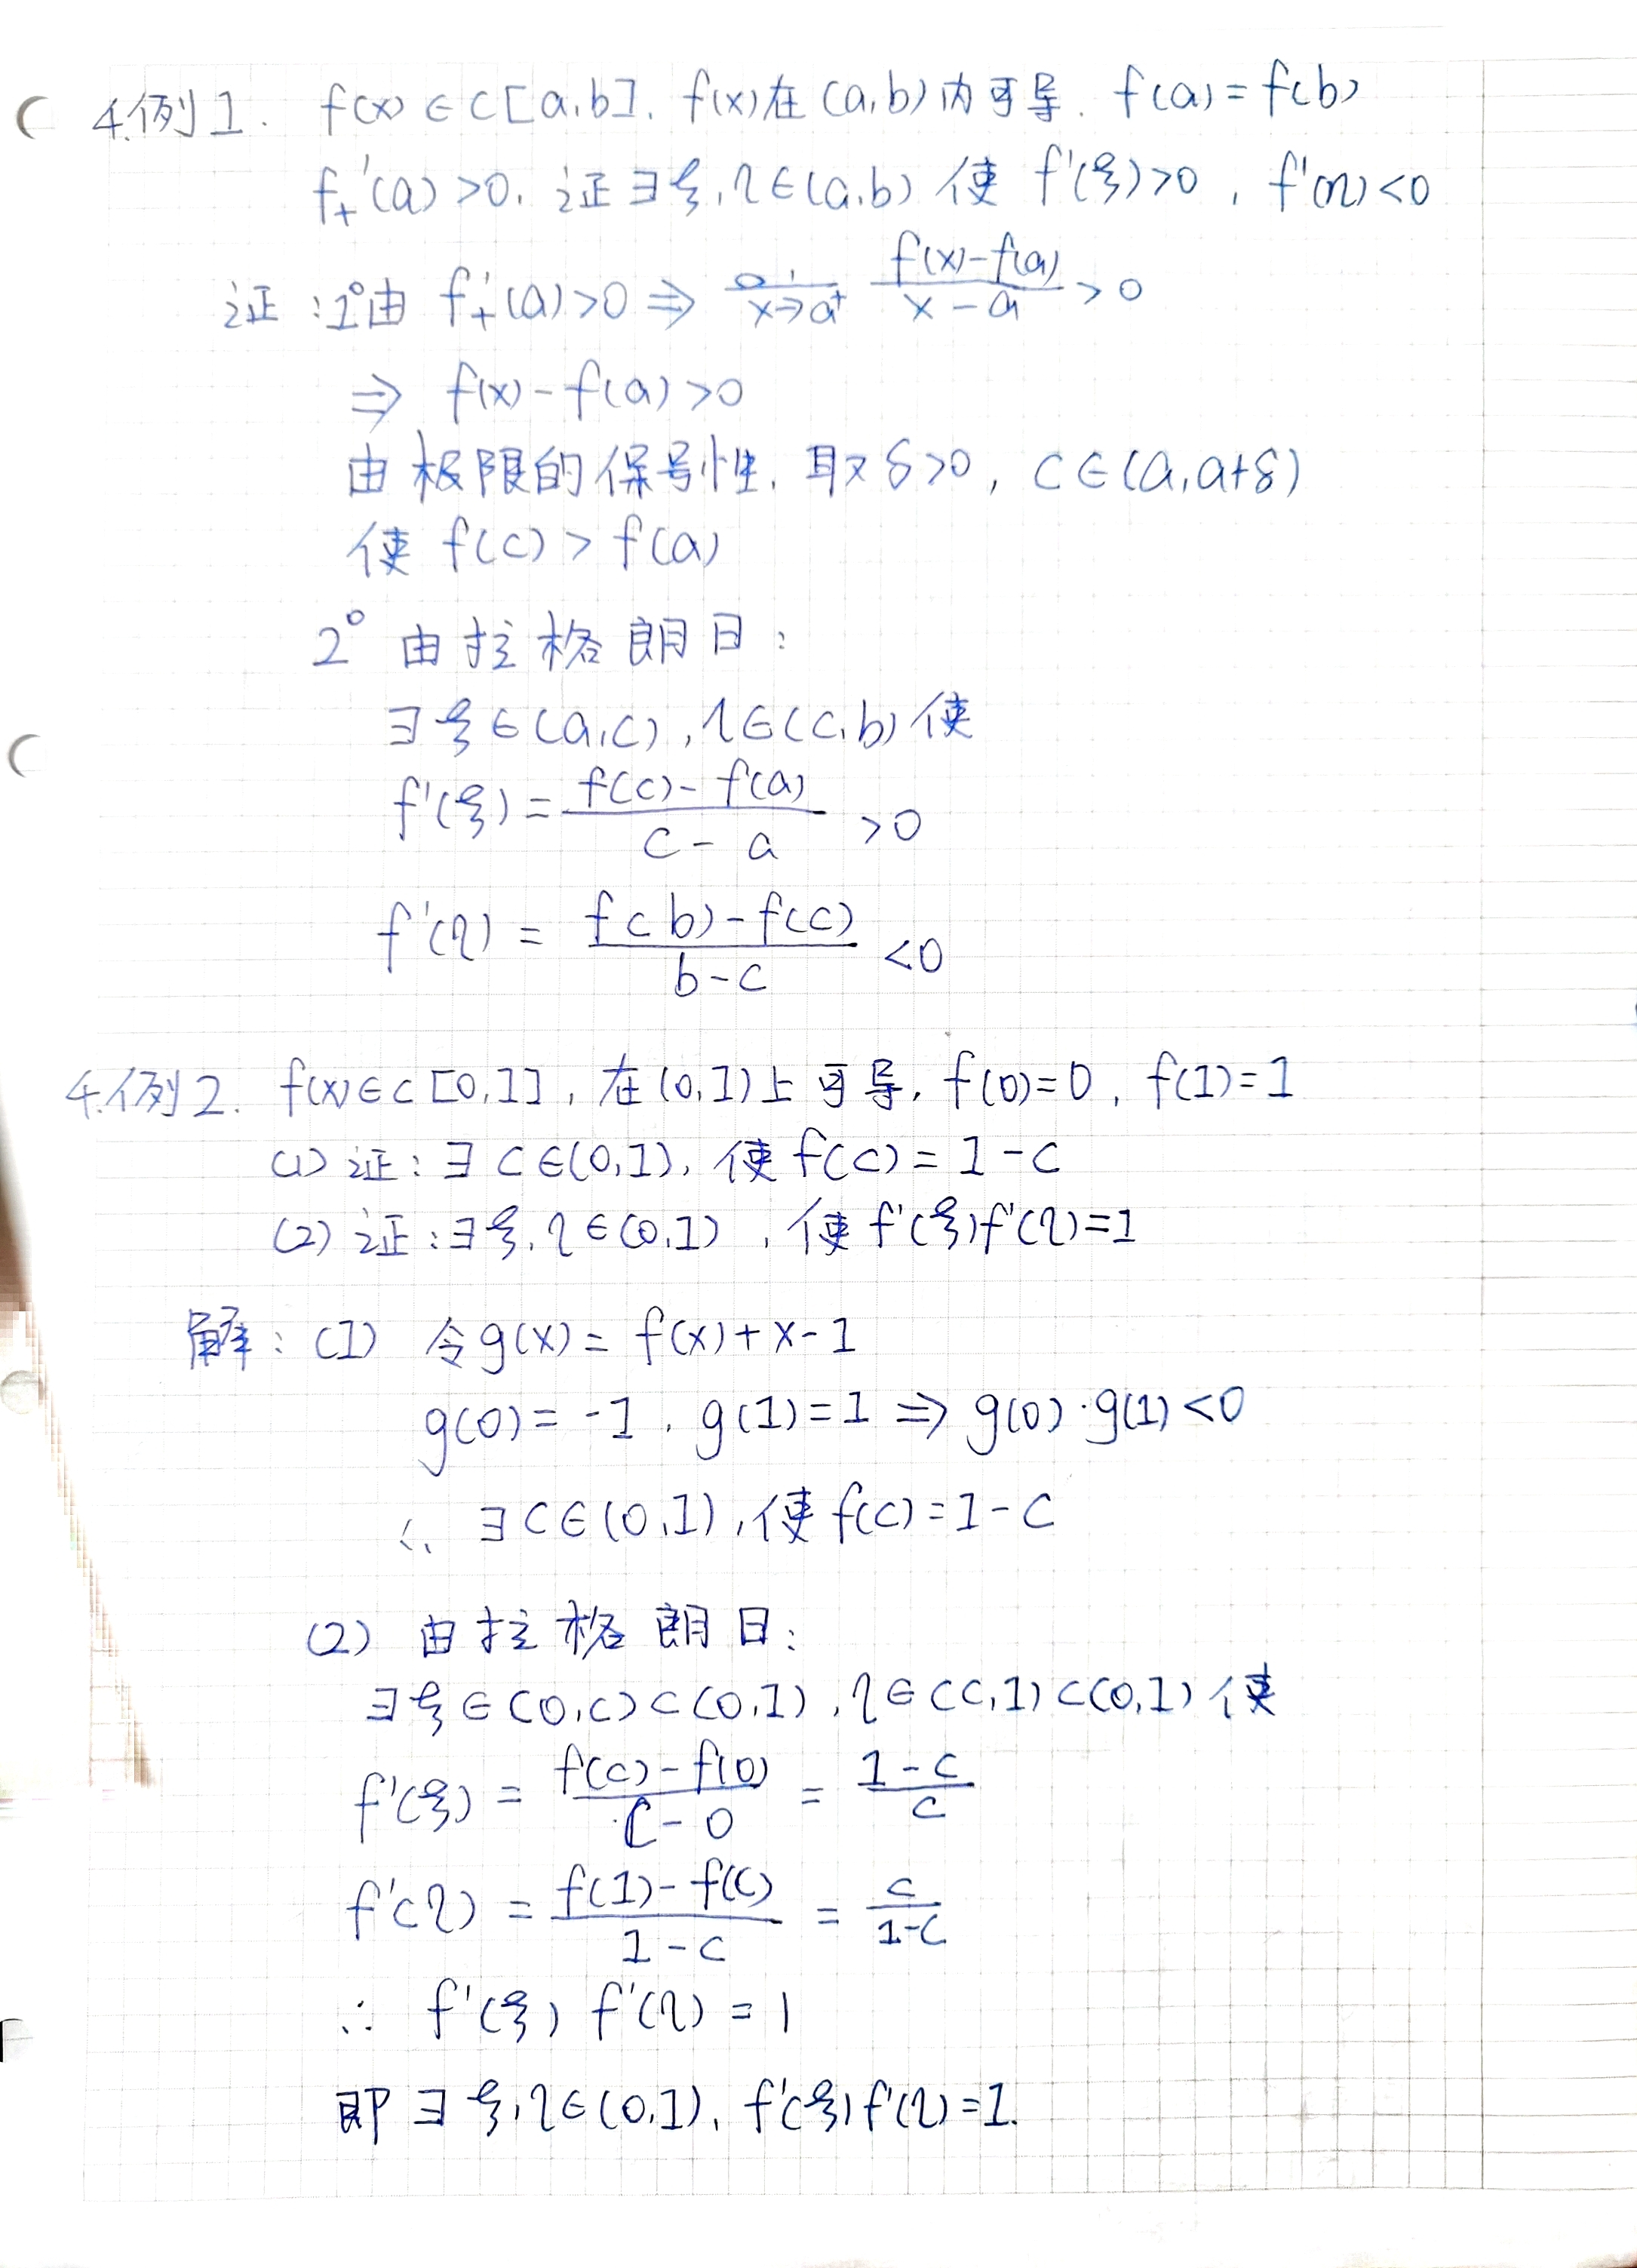 4.例1. f(x)∈C[a,b]. f(x)在(a,b)内可导. f(a)=f(b)
f₊'(a)>0. 证∃ξ,η∈(a,b) 使 f'(ξ)>0, f'(η)<0
证:1°由 f₊'(a)>0 ⇒ x→a⁺ (f(x)-f(a))/(x-a) >0
⇒ f(x)-f(a)>0
由极限的保号性, 取δ>0, c∈(a,a+δ)
使 f(c)>f(a)
2° 由拉格朗日:
∃ξ∈(a,c), η∈(c,b)使
f'(ξ)=(f(c)-f(a))/(c-a) >0
f'(η)=(f(b)-f(c))/(b-c) <0
4.例2. f(x)∈C[0,1], 在(0,1)上可导, f(0)=0, f(1)=1
(1)证:∃c∈(0,1), 使f(c)=1-c
(2)证:∃ξ,η∈(0,1), 使f'(ξ)f'(η)=1
解:(1) 令g(x)=f(x)+x-1
g(0)=-1, g(1)=1 ⇒ g(0)·g(1)<0
∴ ∃c∈(0,1),使f(c)=1-c
(2) 由拉格朗日:
∃ξ∈(0,c)⊂(0,1), η∈(c,1)⊂(0,1)使
f'(ξ)=(f(c)-f(0))/(c-0)=(1-c)/c
f'(η)=(f(1)-f(c))/(1-c)=c/(1-c)
∴ f'(ξ)f'(η)=1
即∃ξ,η∈(0,1), f'(ξ)f'(η)=1.